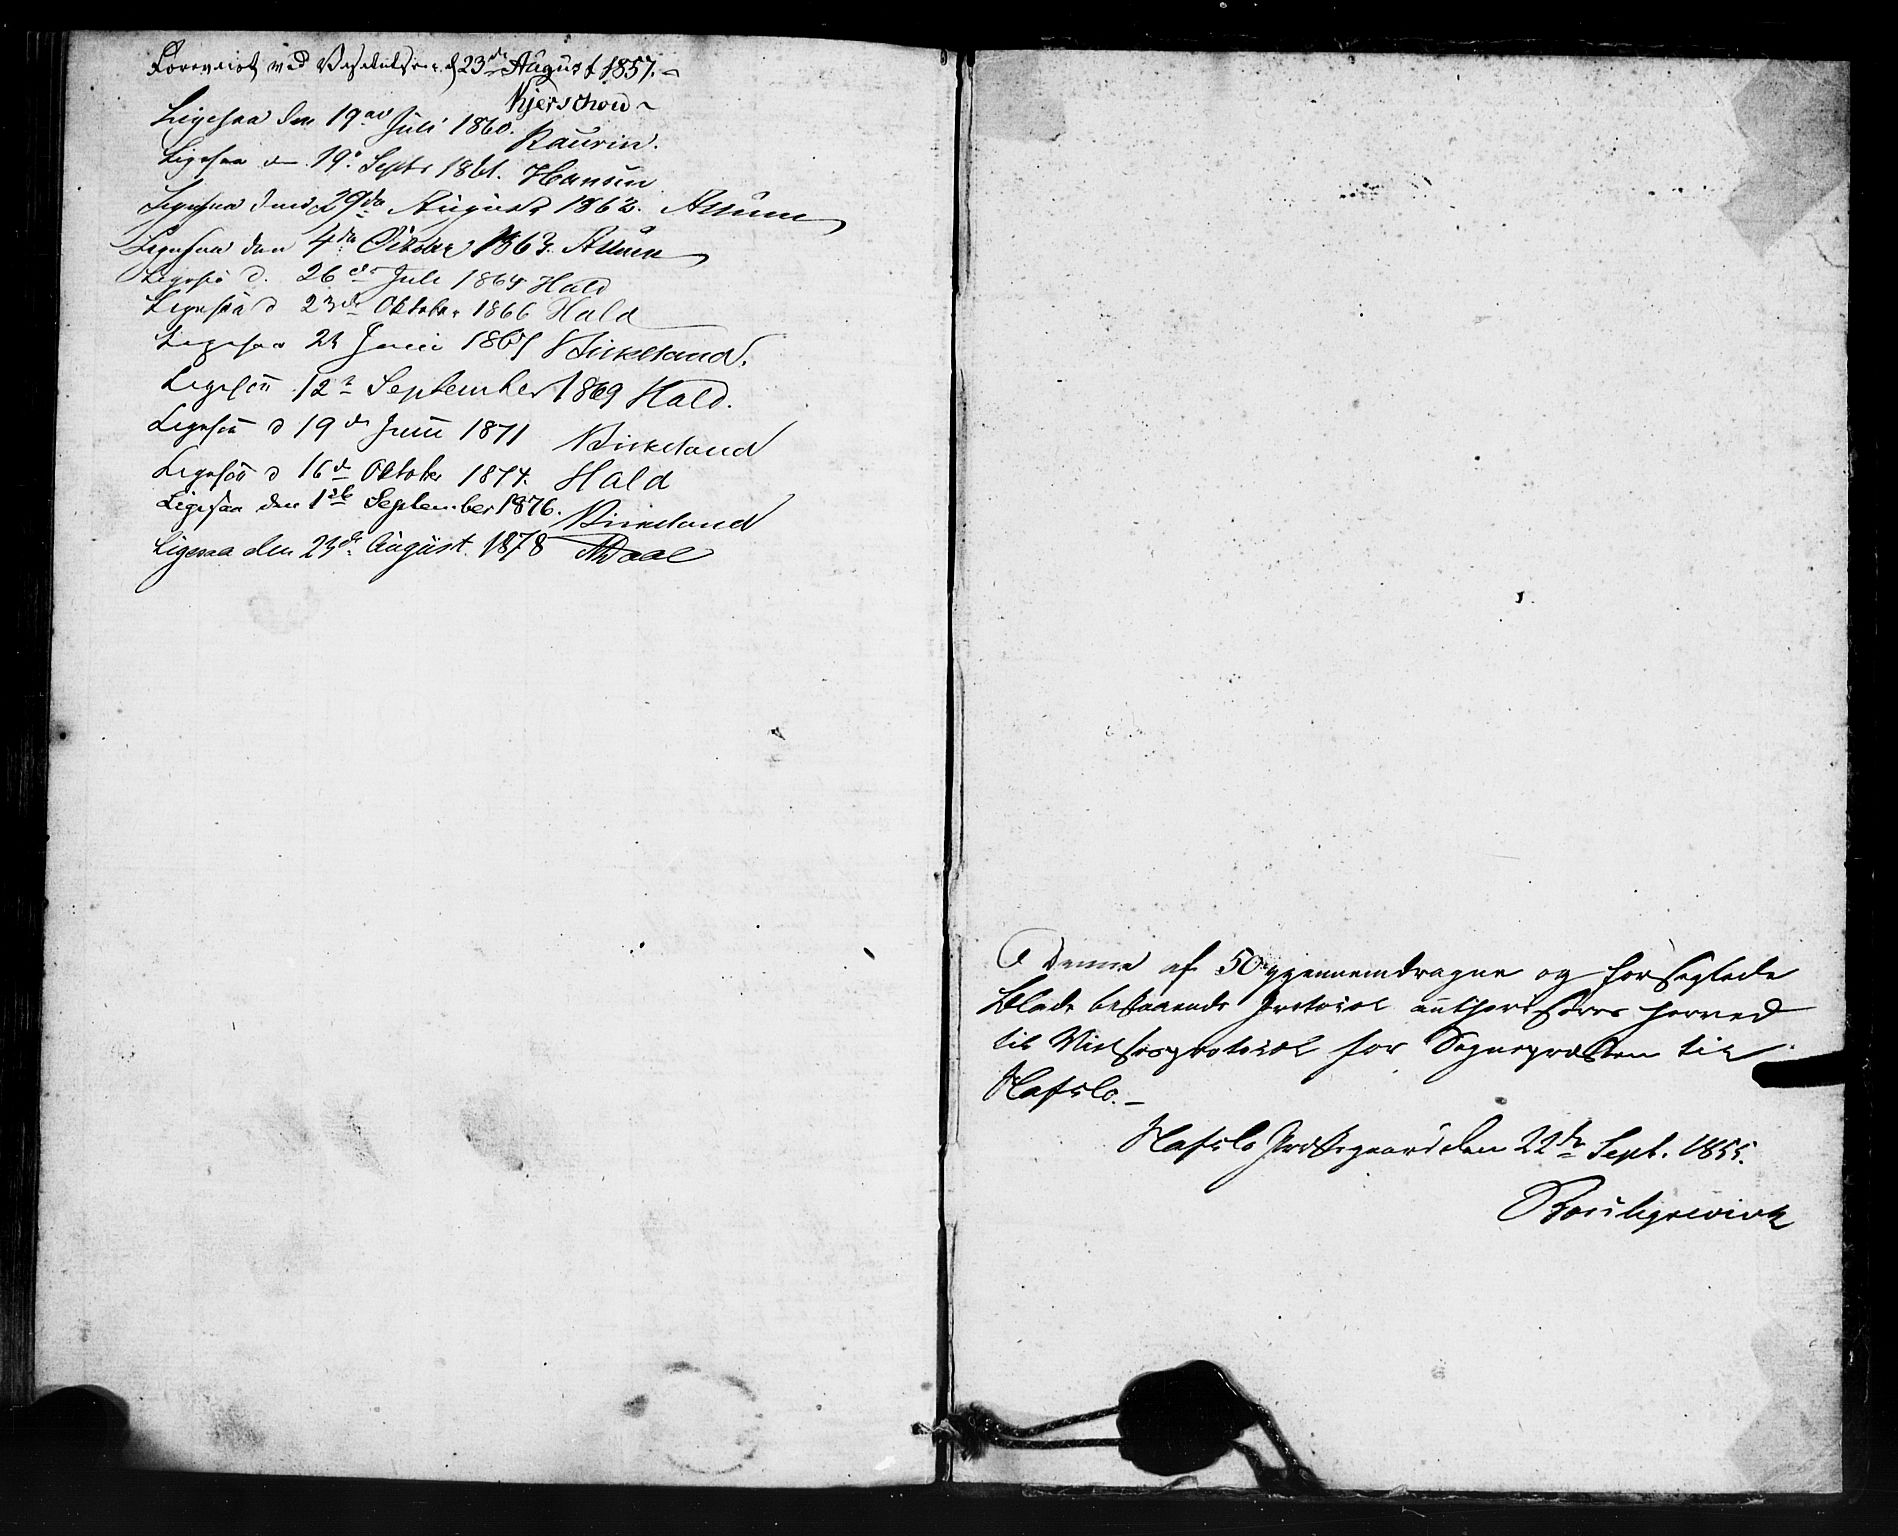 Foreviist ved Visitatsen d 23de August 1857.
Kjerschow
Ligesaa den 19de Juli 1860.
Kaurin.
Ligesaa d 19e Septr 1861. Hansen
Ligesaa den 29de August 1862. Assum
Ligesaa den 4de October 1863. Assum
Ligesaa d. 26de Juli 1864 Hald
Ligesaa d 23de Oktober 1866 Hald
Ligesaa 21 Juni 1867 Birkeland.
Ligesaa 12te September 1869 Hald.
Ligesaa d 19de Juni 1871 Birkeland
Ligesaa d 16de Oktober 1874. Hald
Ligesaa den 1ste September 1876. Birkeland
Ligesaa den 23de August 1878 Daae
Denne af 50 gjennemdragne og forseglede
Blade bestaaende Protocol authoriseres herved
til Vielsesprotocol for Sognepræsten til
Hafslo.
Hafslo Præstegaard den 22de Sept. 1855.